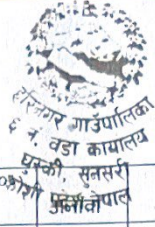 हरिनगर गाउँपालिका
६ नं. वडा कार्यालय
घुस्की, सुनसरी
कोशी